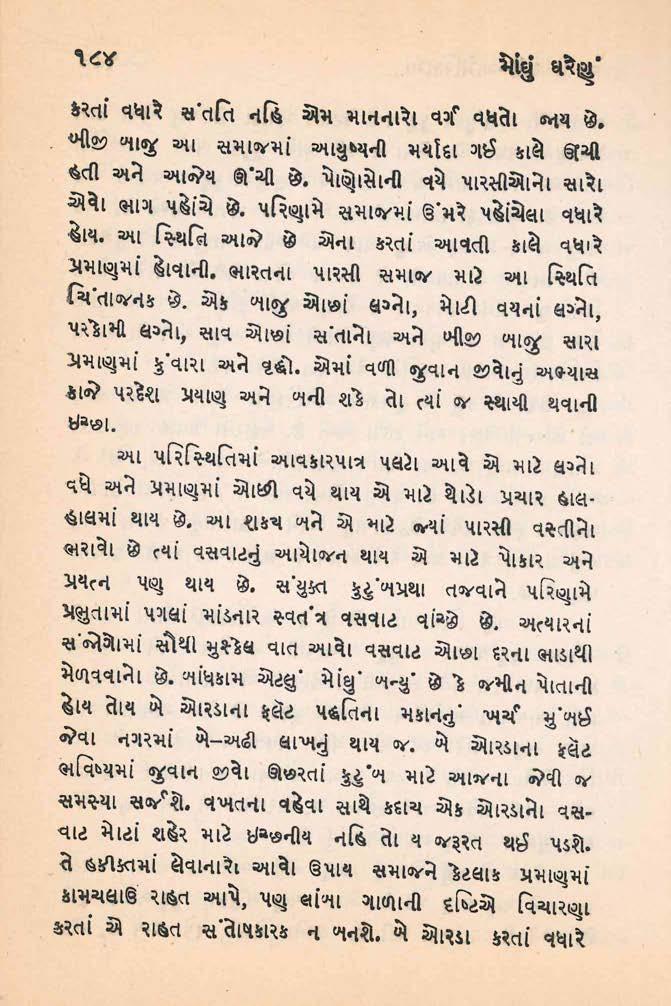 ૧૮૪ મોંઘું ઘરેણું
કરતાં વધારે સંતતિ નહિ એમ માનનારો વર્ગ વધતો જાય છે.
બીજી બાજુ આ સમાજમાં આયુષ્યની મર્યાદા ગઈ કાલે ઊંચી
હતી અને આજેય ઊંચી છે. પોણોસોની વયે પારસીઓનો સારો
એવો ભાગ પહોંચે છે. પરિણામે સમાજમાં ઉંમરે પહોંચેલા વધારે
હોય. આ સ્થિતિ આજે છે એના કરતાં આવતી કાલે વધારે
પ્રમાણમાં હોવાની. ભારતના પારસી સમાજ માટે આ સ્થિતિ
ચિંતાજનક છે. એક બાજુ ઓછાં લગ્નો, મોટી વયનાં લગ્નો,
પરકોમી લગ્નો, સાવ ઓછાં સંતાનો અને બીજી બાજુ સારા
પ્રમાણમાં કુંવારા અને વૃદ્ધો. એમાં વળી જુવાન જીવોનું અભ્યાસ
કાજે પરદેશ પ્રયાણ અને બની શકે તો ત્યાં જ સ્થાયી થવાની
ઇચ્છા.
આ પરિસ્થિતિમાં આવકારપાત્ર પલટો આવે એ માટે લગ્નો
વધે અને પ્રમાણમાં ઓછી વયે થાય એ માટે થોડો પ્રચાર હાલ-
હાલમાં થાય છે. આ શકય બને એ માટે જ્યાં પારસી વસ્તીનો
ભરાવો છે ત્યાં વસવાટનું આયોજન થાય એ માટે પોકાર અને
પ્રયત્ન પણ થાય છે. સંયુક્ત કુટુંબપ્રથા તજવાને પરિણામે
પ્રભુતામાં પગલાં માંડનાર સ્વતંત્ર વસવાટ વાંચ્છે છે. અત્યારનાં
સંજોગોમાં સૌથી મુશ્કેલ વાત આવો વસવાટ ઓછા દરના ભાડાથી
મેળવવાનો છે. બાંધકામ એટલું મોંઘું બન્યું છે કે જમીન પોતાની
હોય તોય બે ઓરડાના ફ્લૅટ પદ્ધતિના મકાનનું ખર્ચ મુંબઈ
જેવા નગરમાં બે-અઢી લાખનું થાય જ. બે ઓરડાના ફ્લૅટ
ભવિષ્યમાં જુવાન જીવો ઊછરતાં કુટુંબ માટે આજના જેવી જ
સમસ્યા સર્જશે. વખતના વહેવા સાથે કદાચ એક ઓરડાનો વસ-
વાટ મોટાં શહેર માટે ઇચ્છનીય નહિ તો ય જરૂરત થઈ પડશે.
તે હકીકતમાં લેવાનારો આવો ઉપાય સમાજને કેટલાક પ્રમાણમાં
કામચલાઉ રાહત આપે, પણ લાંબા ગાળાની દૃષ્ટિએ વિચારણા
કરતાં એ રાહત સંતોષકારક ન બનશે. બે ઓરડા કરતાં વધારે